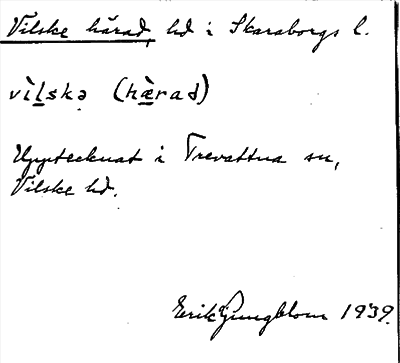 Vilske härad, hd i Skaraborgs l.
vìlskə (hæ̀rad)
Upptecknat i Trevattna sn,
Vilske hd.
Erik Ljungblom 1939.